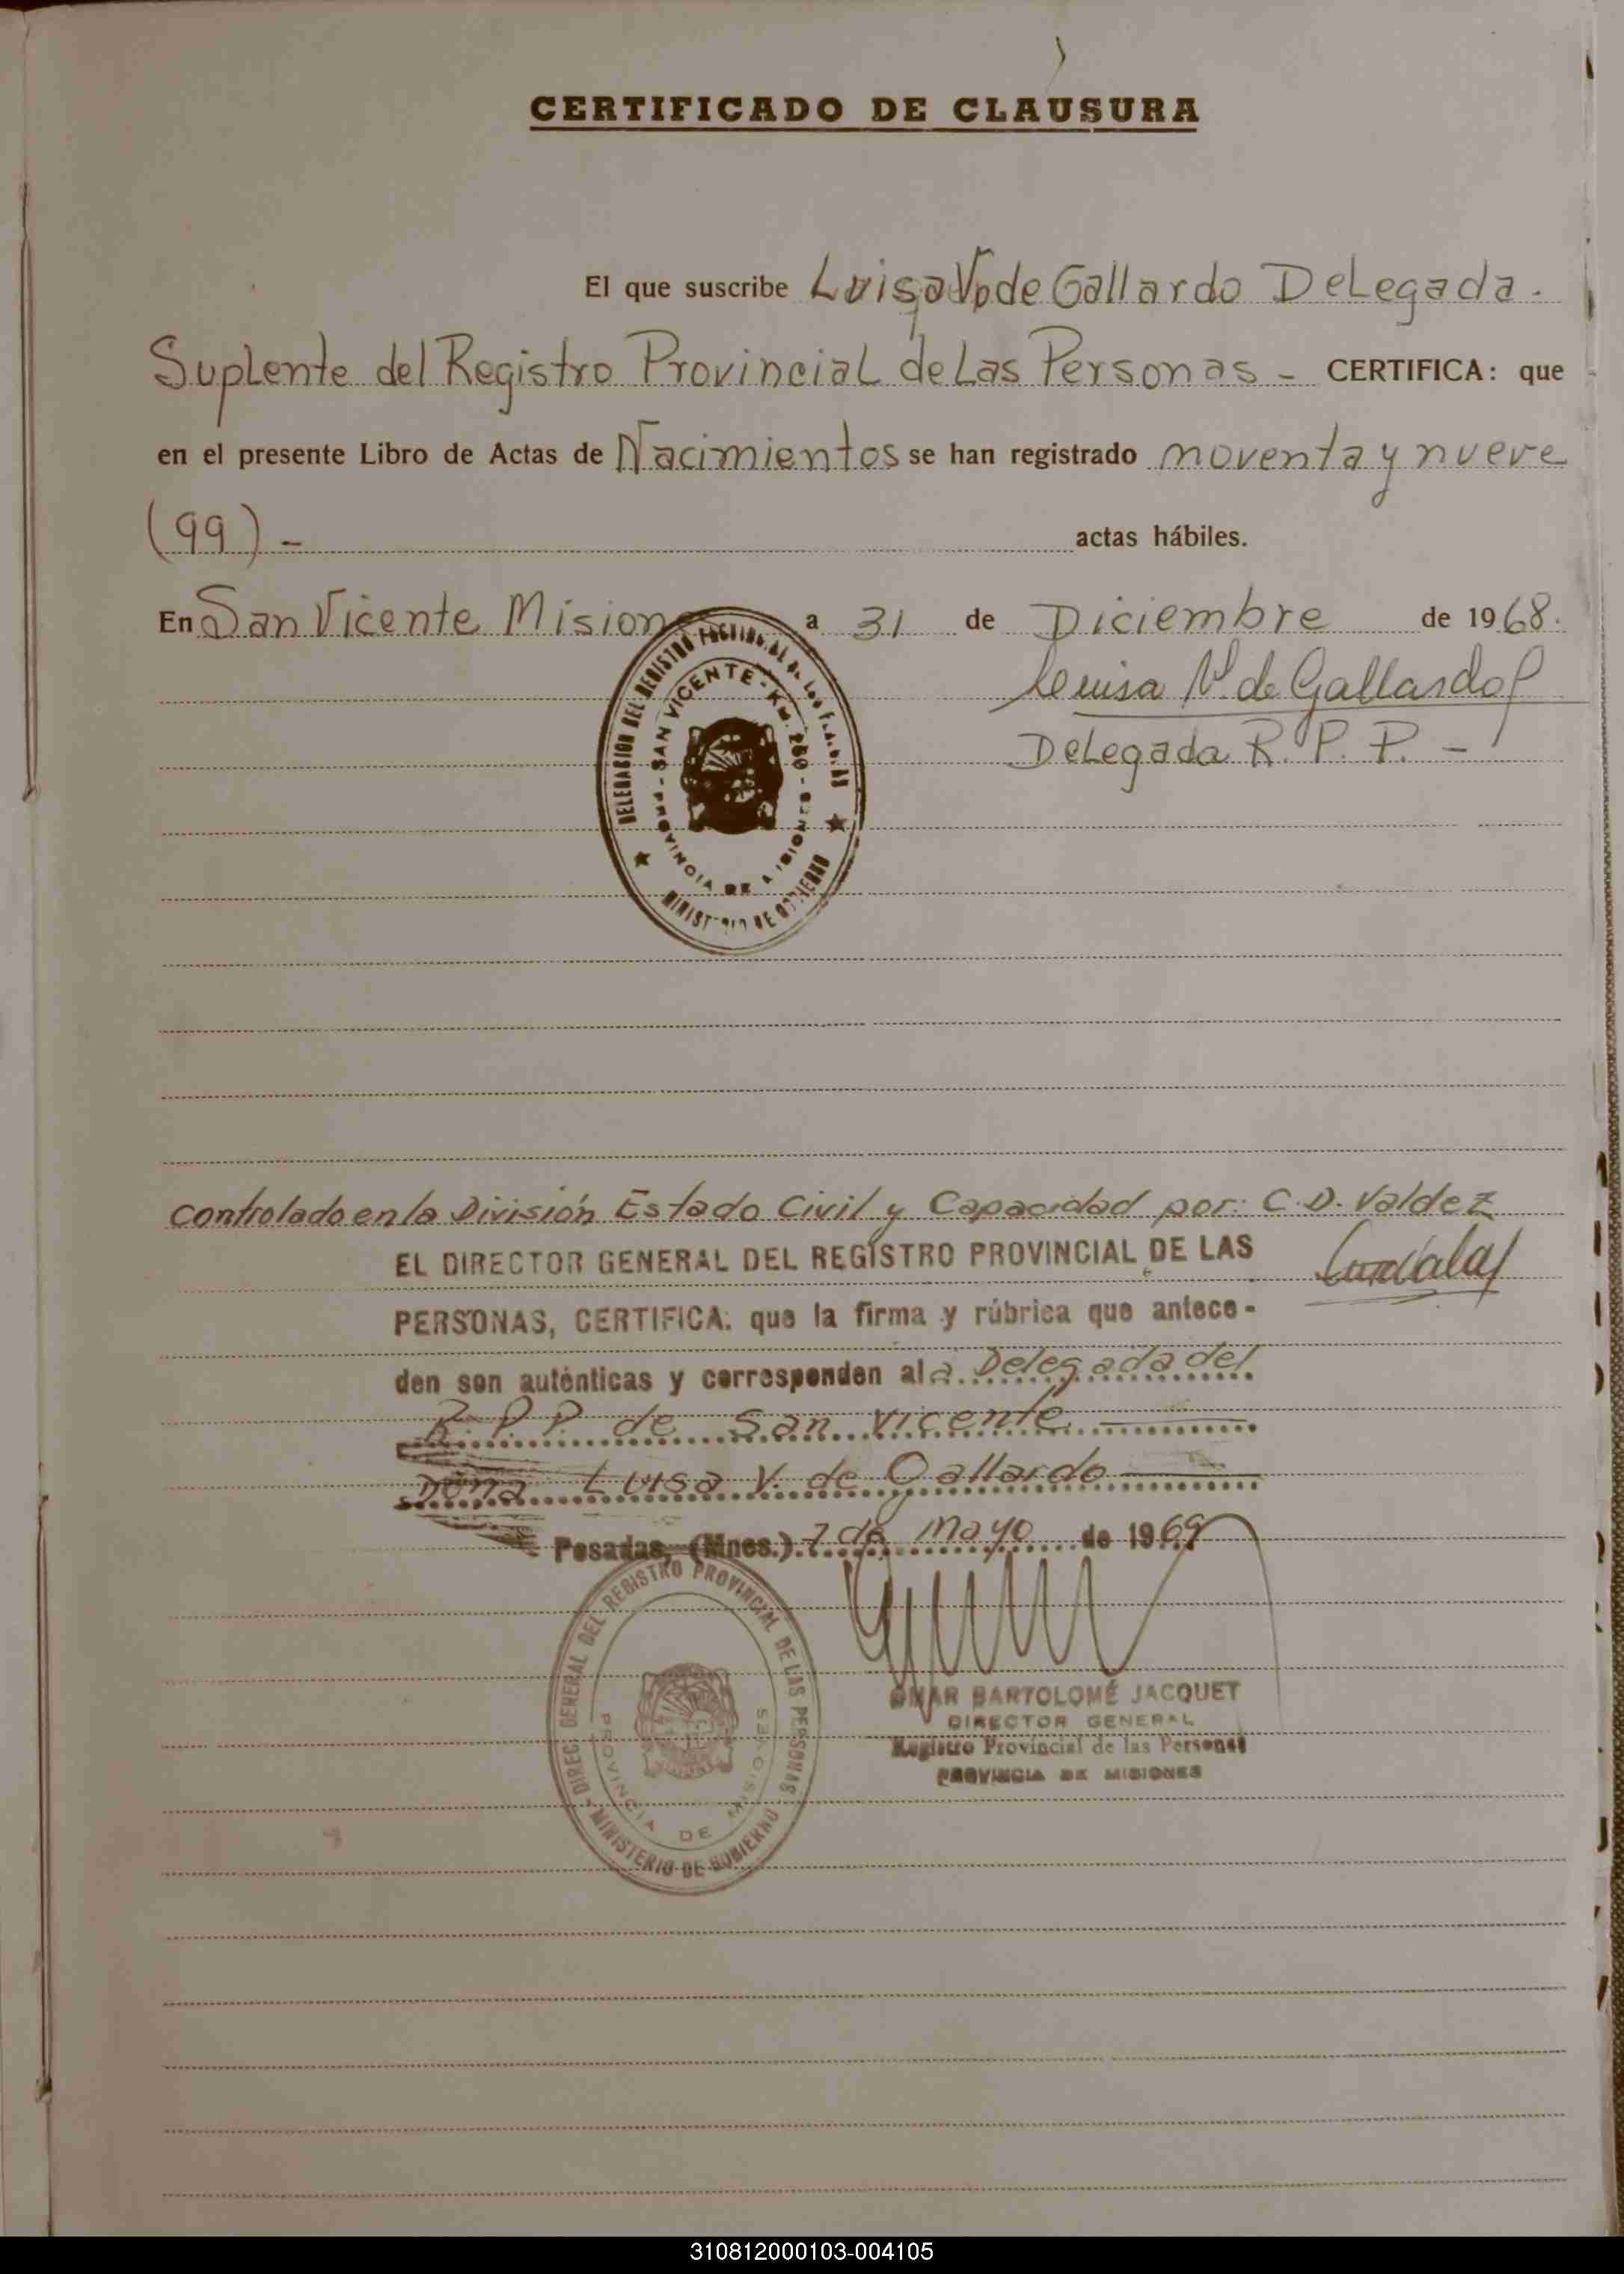 CERTIFICADO DE CLAUSURA
El que suscribe Luisa V. de Gallardo DeLegada.
SupLente del Registro ProvinciaL de Las Personas - CERTIFICA: que
en el presente Libro de Actas de Nacimientos se han registrado noventa y nueve
(99) - actas hábiles.
En San Vicente Misiones a 31 de Diciembre de 1968.
Luisa V. de Gallardo
DeLegada R. P. P. -
DELEGACION DEL REGISTRO PROVINCIAL DE LAS PERSONAS
SAN VICENTE - KM. 260 -
PROVINCIA DE MISIONES
MINISTERIO DE GOBIERNO
Controlado en la División Estado Civil y Capacidad por: C. D. Valdez
EL DIRECTOR GENERAL DEL REGISTRO PROVINCIAL DE LAS
PERSONAS, CERTIFICA: que la firma y rúbrica que antece-
den son auténticas y corresponden al a Delegada del
R. P. P. de San Vicente
Doña Luisa V. de Gallardo
Posadas, (Mnes.) 7 de Mayo de 1969
DIREC. GENERAL DEL REGISTRO PROVINCIAL DE LAS PERSONAS
PROVINCIA DE MISIONES
MINISTERIO DE GOBIERNO
OMAR BARTOLOMÉ JACQUET
DIRECTOR GENERAL
Registro Provincial de las Personas
PROVINCIA DE MISIONES
310812000103-004105